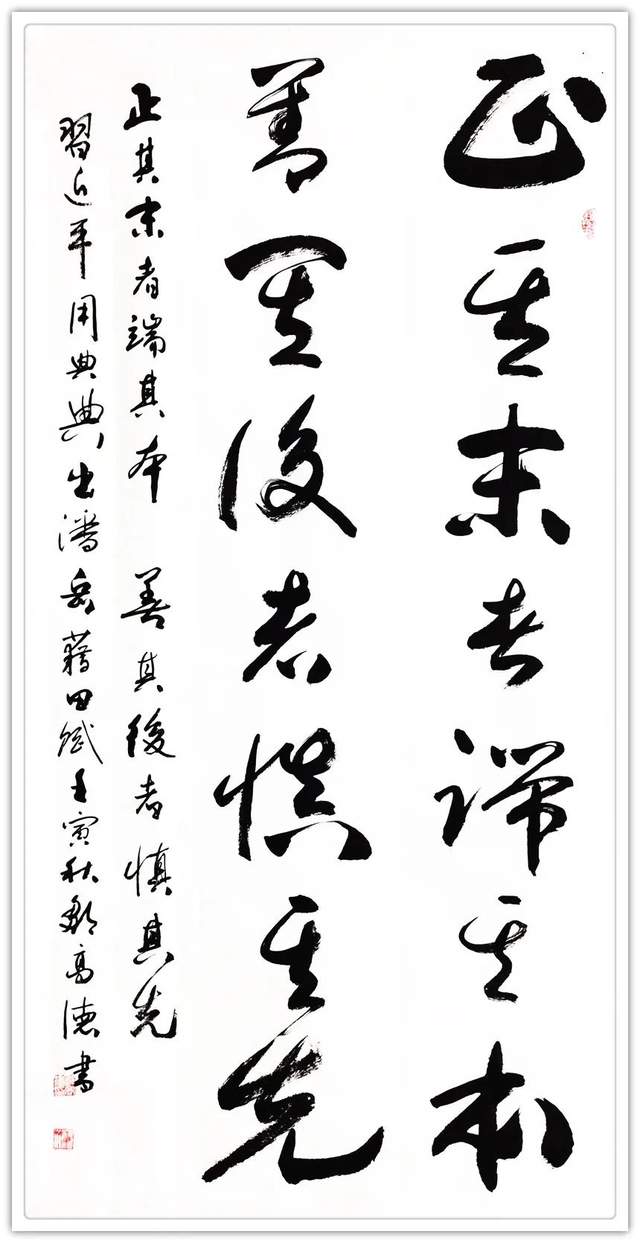 正其末者端其本
善其後者慎其先
正其末者端其本 善其後者慎其先
習近平用典典出潘岳藉田賦壬寅秋鄭高德書